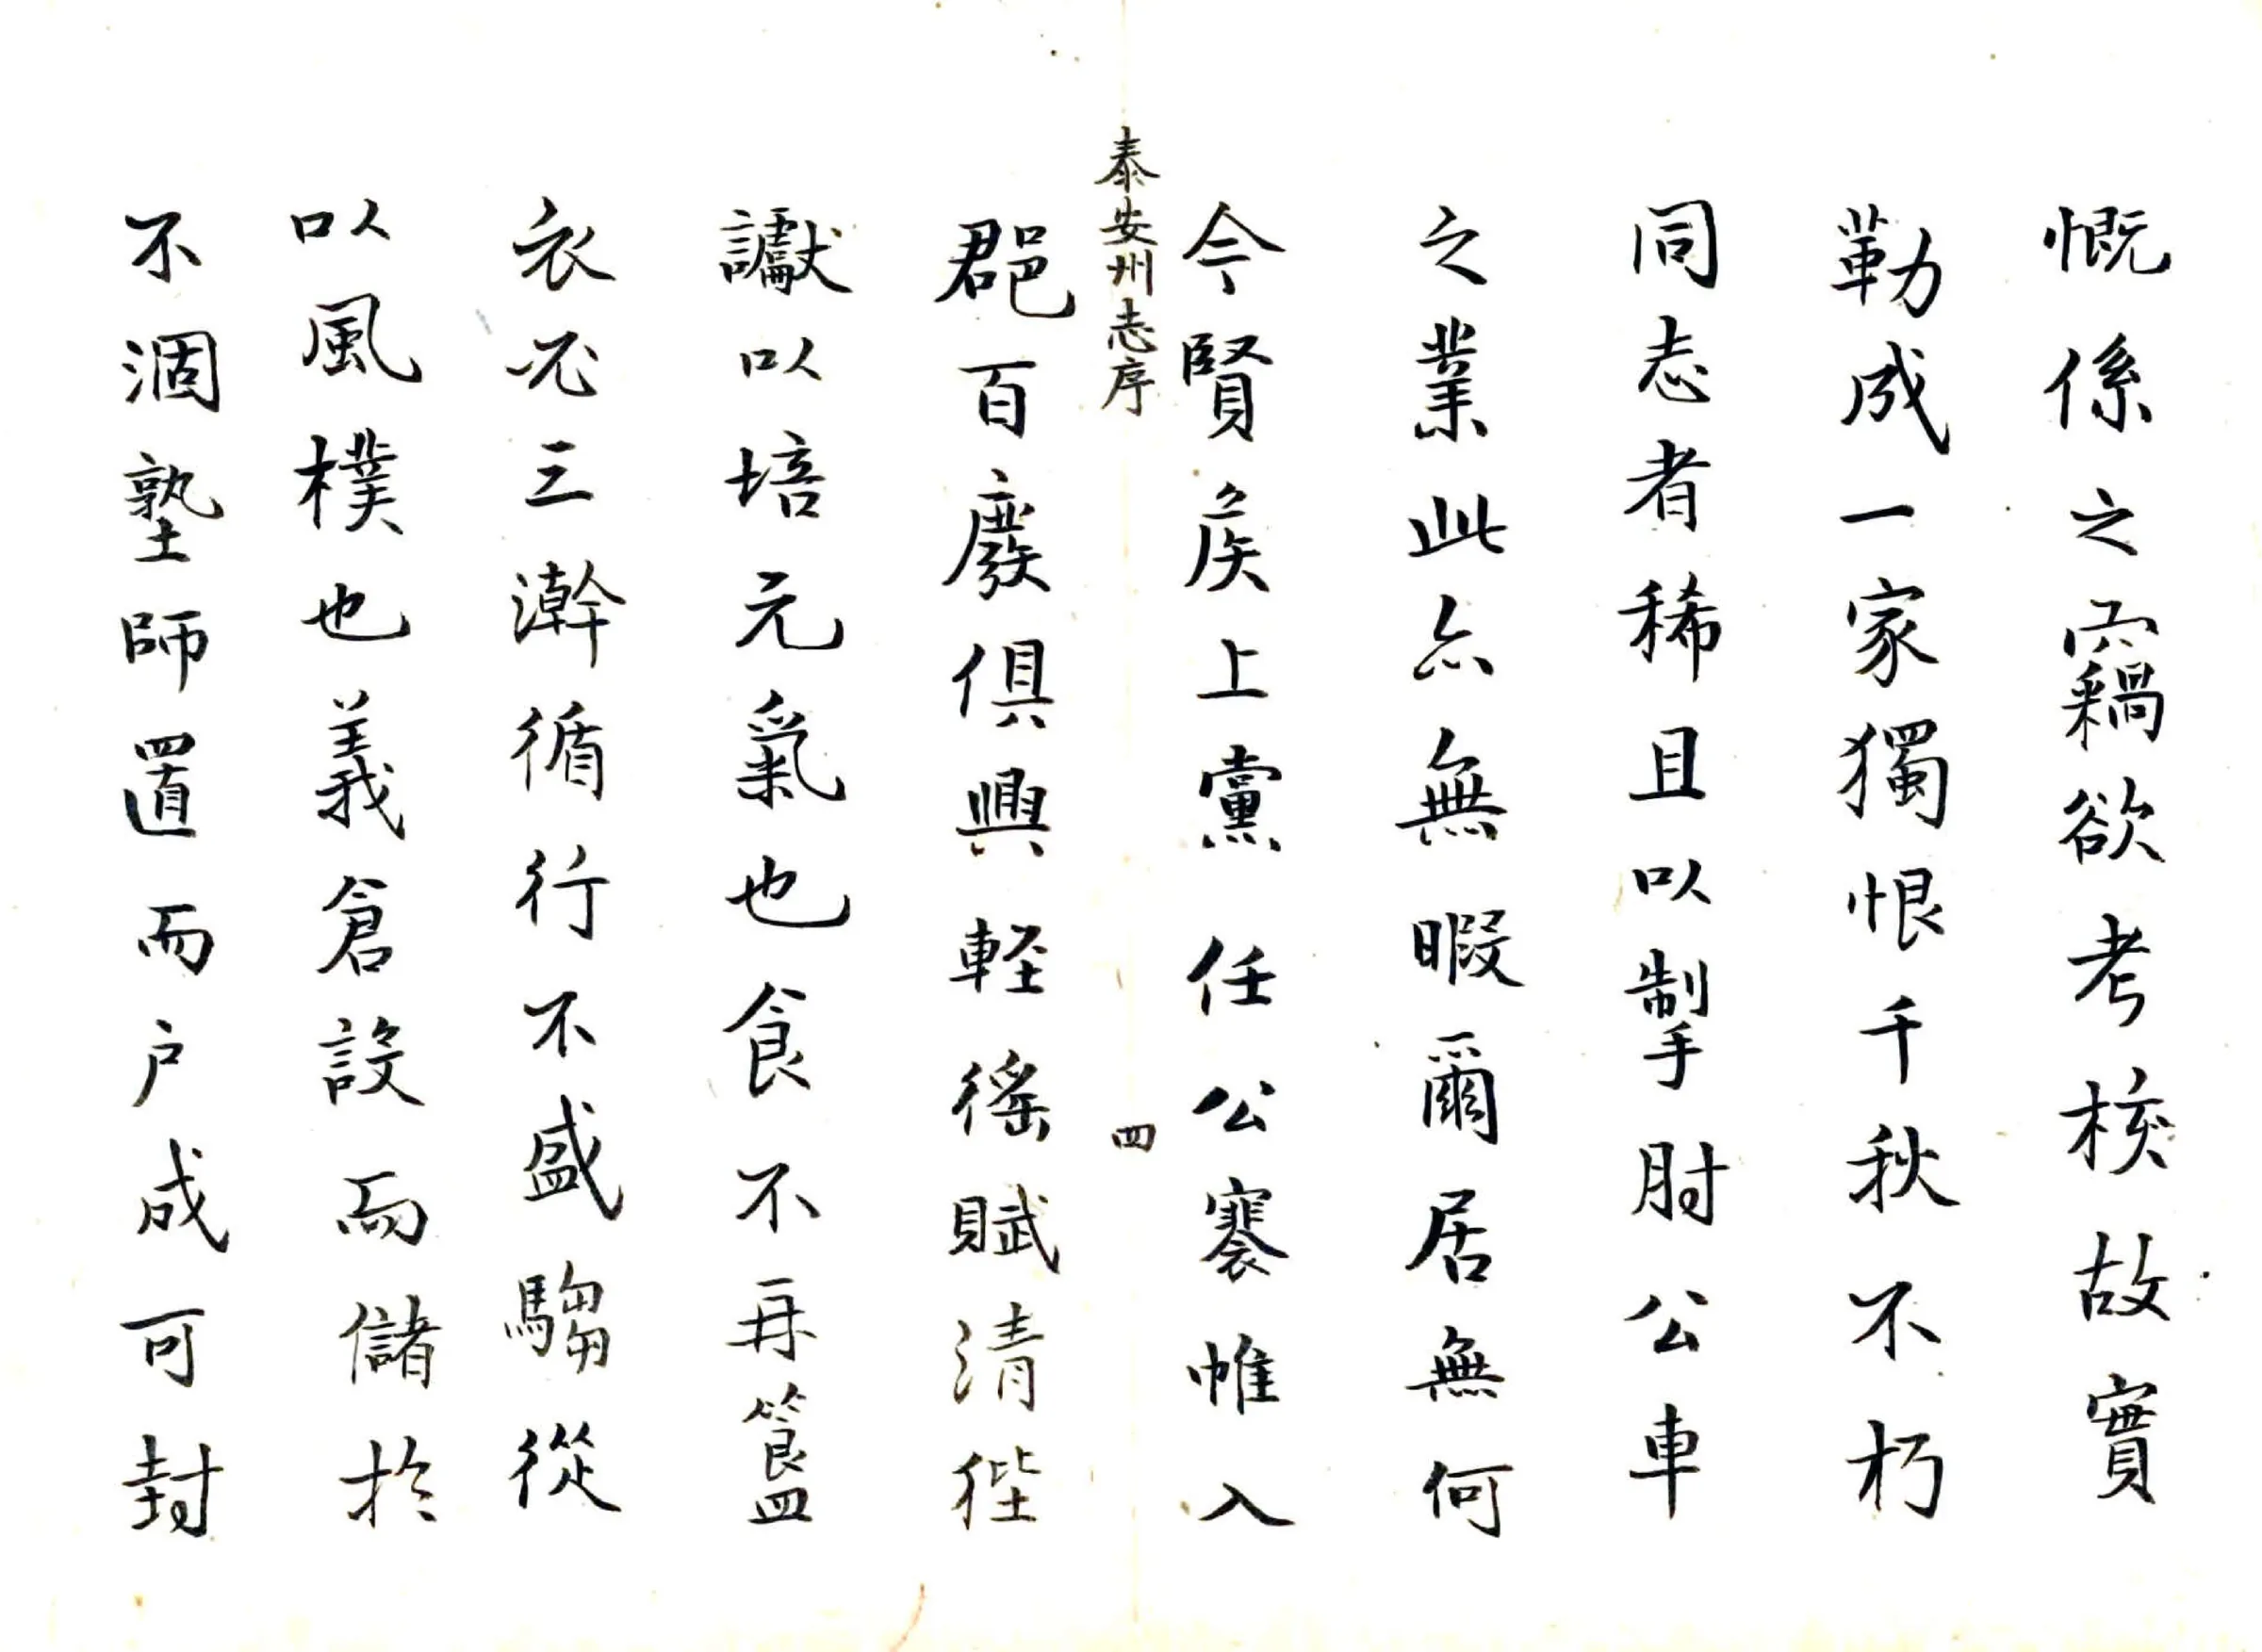 慨係之竊欲考核故實
勒成一家獨恨千秋不朽
同志者稀且以掣肘公車
之業此亦無暇爾居無何
今賢矦上黨任公褰帷入
泰安州志序
四
郡邑百廢俱興輕徭賦清狴
讞以培元氣也食不再簋
衣必三澣循行不盛騶從
以風樸也義倉設而儲於
不涸塾師置而户成可封